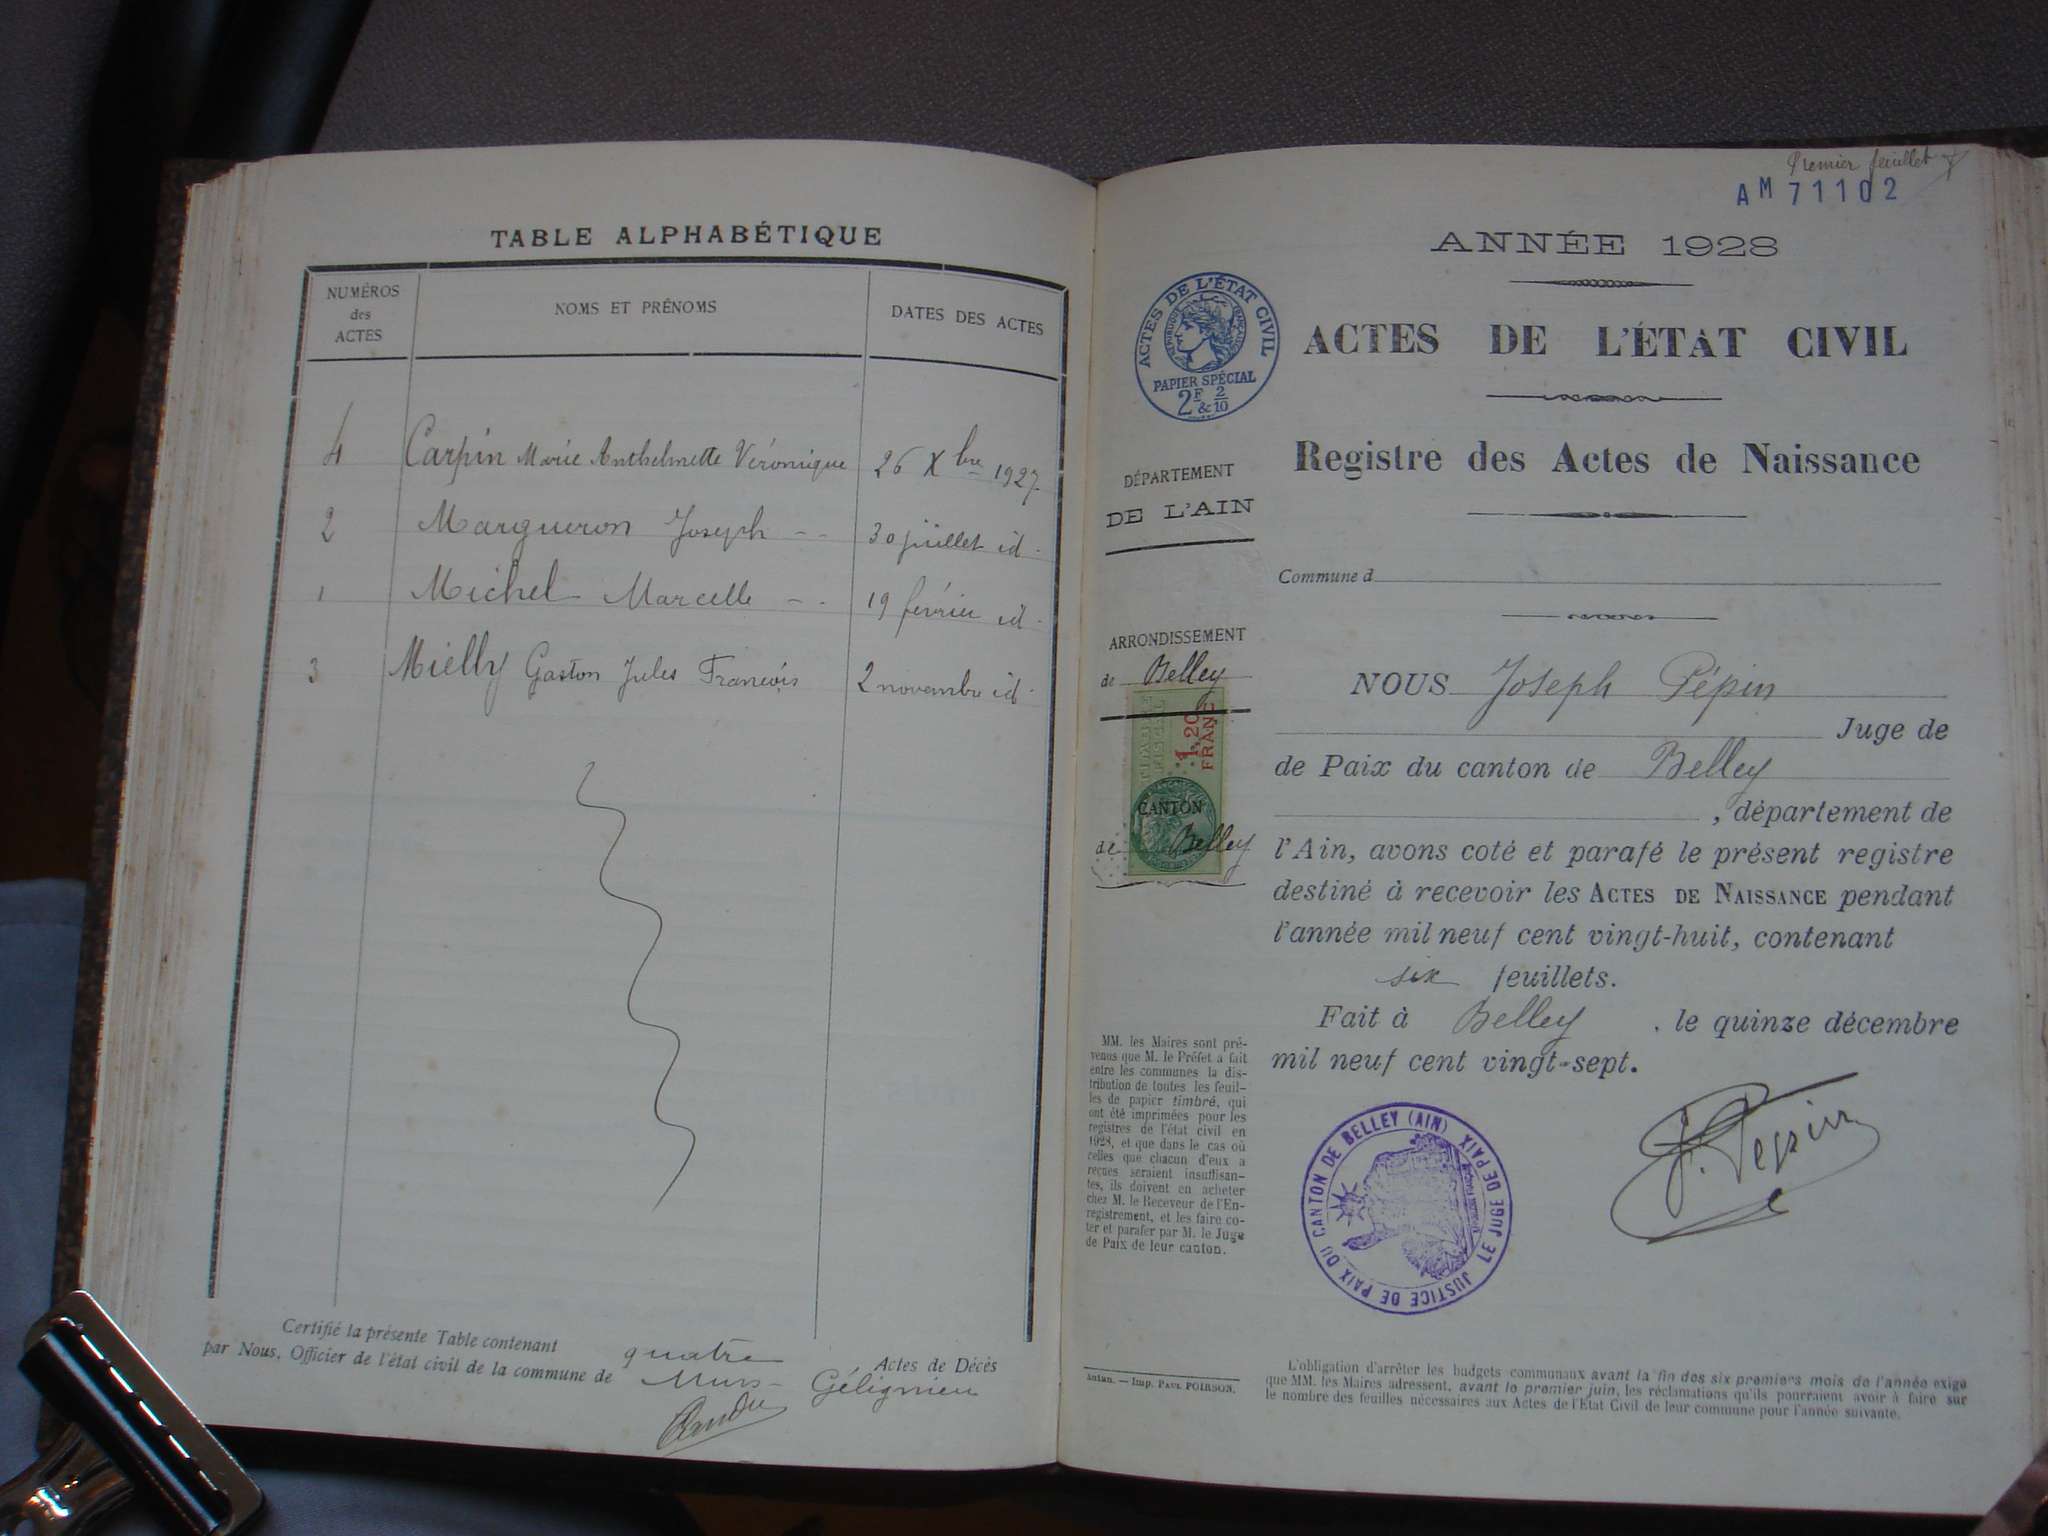 TABLE ALPHABÉTIQUE
NUMÉROS
des
ACTES
NOMS ET PRÉNOMS
DATES DES ACTES
4 Carpin Marie Anthelmette Véronique 26 Xbre 1927
2 Margueron Joseph -- 30 juillet id.
1 Michel Marcelle -- 19 février id.
3 Mielly Gaston Jules François 2 novembre id.
Certifié la présente Table contenant quatre Actes de Décès
par Nous, Officier de l'état civil de la commune de Murs-Gélignieu
Premier feuillet
AM 71102
ANNÉE 1928
ACTES DE L'ÉTAT CIVIL
RÉPUBLIQUE FRANÇAISE
PAPIER SPÉCIAL
2F & 2/10
ACTES DE L'ÉTAT CIVIL
Registre des Actes de Naissance
DÉPARTEMENT
DE L'AIN
Commune d
ARRONDISSEMENT
de Belley
TIMBRE
FISCAL
1,20
FRANC
CANTON
de Belley
NOUS Joseph Pépin
Juge de
de Paix du canton de Belley
, département de
l'Ain, avons coté et parafé le présent registre
destiné à recevoir les ACTES DE NAISSANCE pendant
l'année mil neuf cent vingt-huit, contenant
six feuillets.
Fait à Belley, le quinze décembre
mil neuf cent vingt-sept.
J. Pepin
MM. les Maires sont pré-
venus que M. le Préfet a fait
entre les communes la dis-
tribution de toutes les feuil-
les de papier timbré, qui
ont été imprimées pour les
registres de l'état civil en
1928, et que dans le cas où
celles que chacun d'eux a
reçues seraient insuffisan-
tes, ils doivent en acheter
chez M. le Receveur de l'En-
registrement, et les faire co-
ter et parafer par M. le Juge
de Paix de leur canton.
JUSTICE DE PAIX DU CANTON DE BELLEY (AIN)
LE JUGE DE PAIX
Autun. — Imp. PAUL POIRSON.
L'obligation d'arrêter les budgets communaux avant la fin des six premiers mois de l'année exige
que MM. les Maires adressent, avant le premier juin, les réclamations qu'ils pourraient avoir à faire sur
le nombre des feuilles nécessaires aux Actes de l'État Civil de leur commune pour l'année suivante.